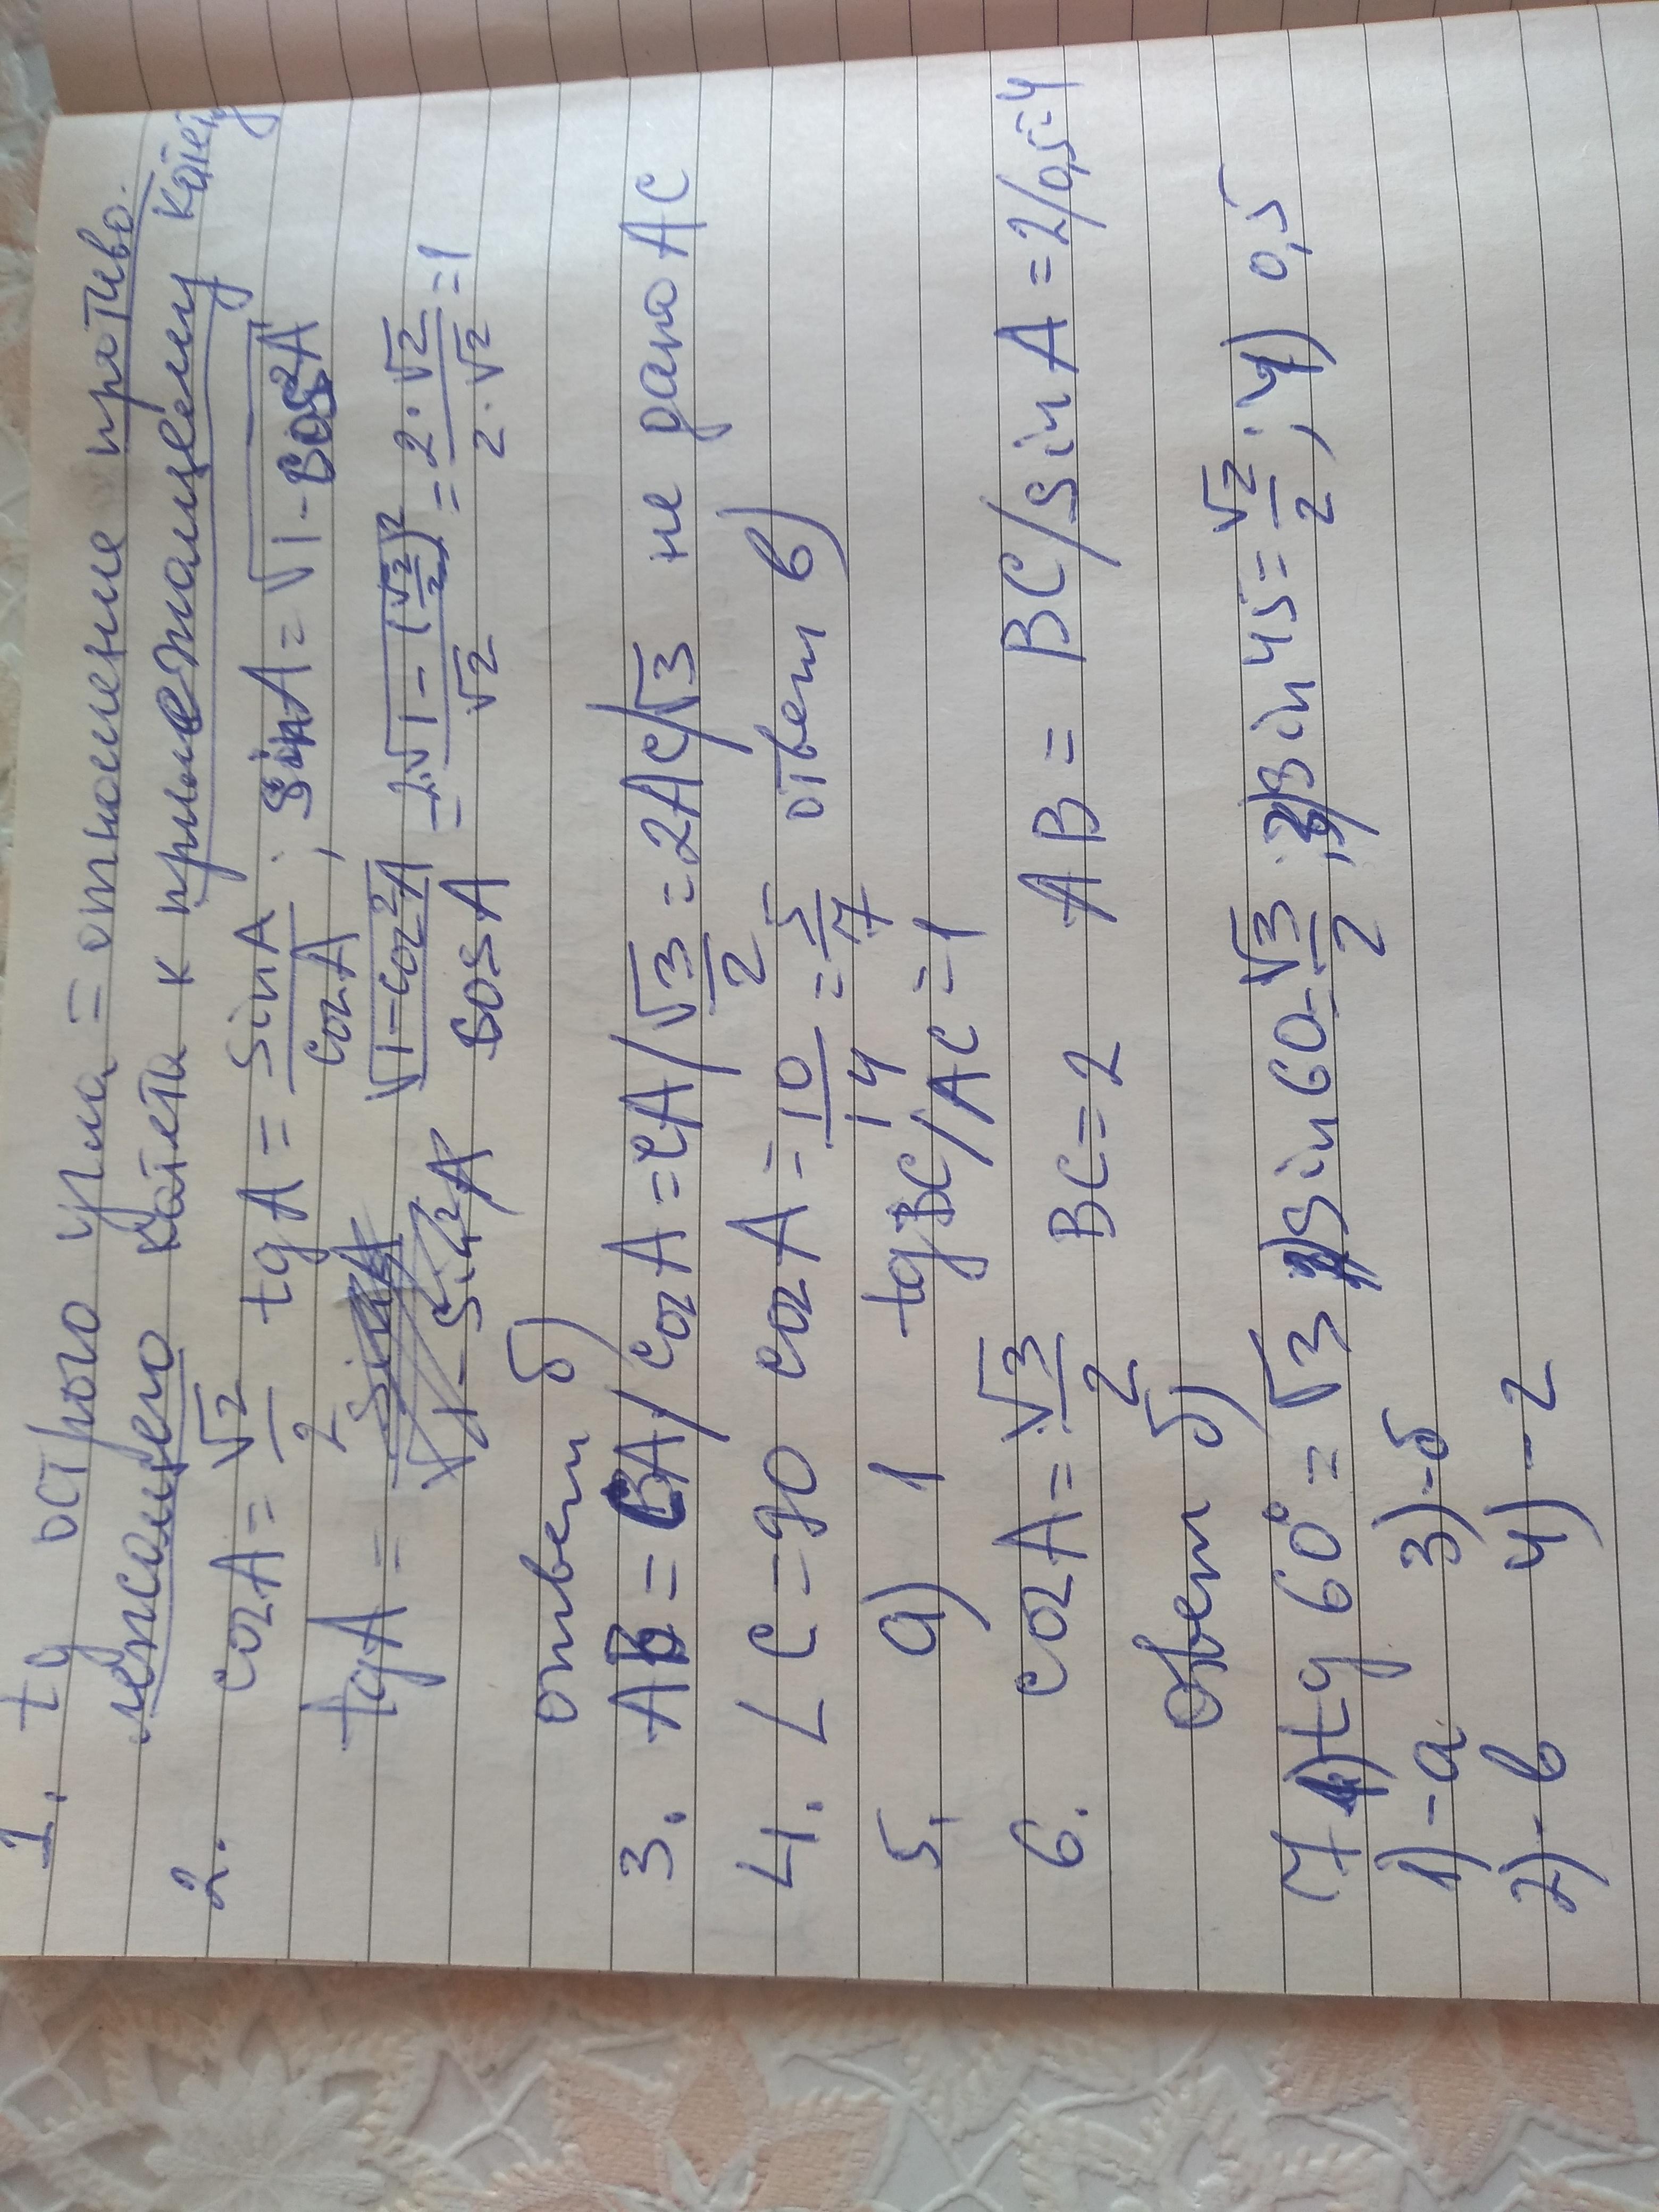 1. tg острого угла = отношение противо.
лежащего катета к прилежащему катету
2. cosA = √2/2 tgA = sinA/cosA; sinA = √1-cos²A
tgA = √1-cos²A/cosA = 2·√1-(√2/2)²/√2 = 2·√2/2·√2 = 1
ответ б)
3. AB = CA/cosA = CA/√3/2 = 2AC/√3 не дано AC
4. ∠C = 90 cosA = 10/14 = 5/7 ответ в)
5. a) 1 tg BC/AC = 1
6. cosA = √3/2 BC = 2 AB = BC/sinA = 2/0,5=4
Ответ б)
7 1) tg 60° = √3 2) sin60=√3/2; 3) sin45=√2/2; 4) 0,5
1) - а 3) - б
2) - в 4) - г